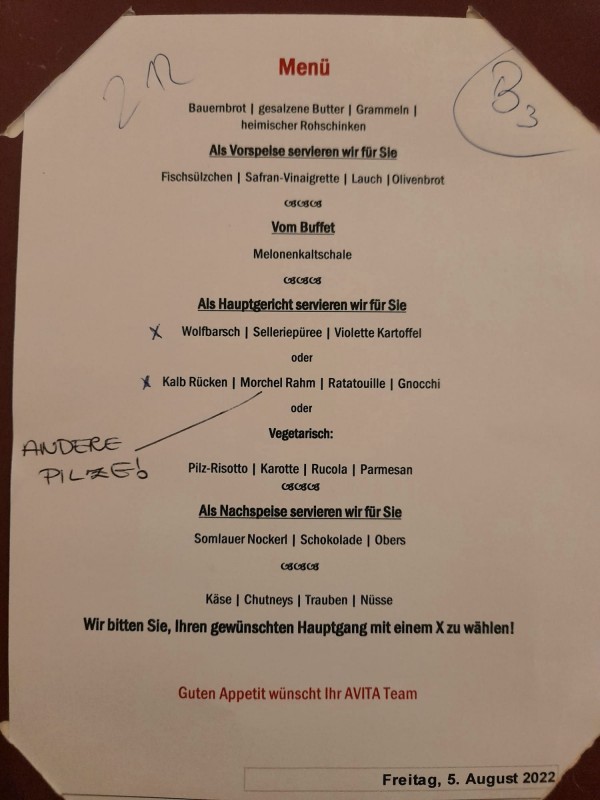 Menü
B3
Bauernbrot | gesalzene Butter | Grammeln |
heimischer Rohschinken
Als Vorspeise servieren wir für Sie
Fischsülzchen | Safran-Vinaigrette | Lauch |Olivenbrot
Vom Buffet
Melonenkaltschale
Als Hauptgericht servieren wir für Sie
X Wolfbarsch | Selleriepüree | Violette Kartoffel
oder
X Kalb Rücken | Morchel Rahm | Ratatouille | Gnocchi
oder
ANDERE
PILZE!
Vegetarisch:
Pilz-Risotto | Karotte | Rucola | Parmesan
Als Nachspeise servieren wir für Sie
Somlauer Nockerl | Schokolade | Obers
Käse | Chutneys | Trauben | Nüsse
Wir bitten Sie, Ihren gewünschten Hauptgang mit einem X zu wählen!
Guten Appetit wünscht Ihr AVITA Team
Freitag, 5. August 2022